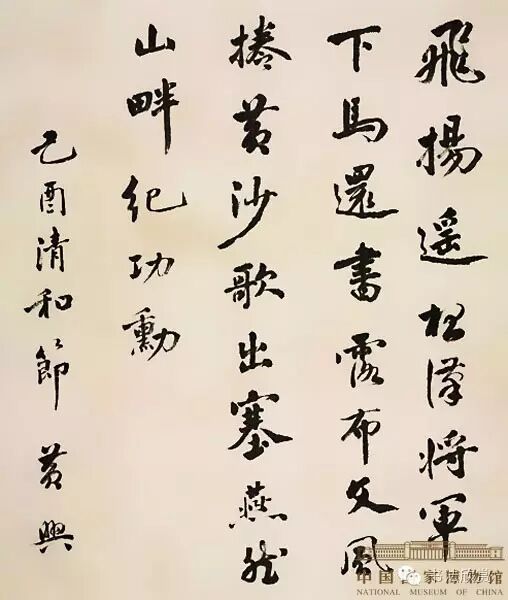 飛揚遥漢將軍
下馬還書露布文風
捲黄沙歌出塞燕然
山畔紀功勳
己酉清和節 黄興
中国国家博物館
NATIONAL MUSEUM OF CHINA
书法欣赏